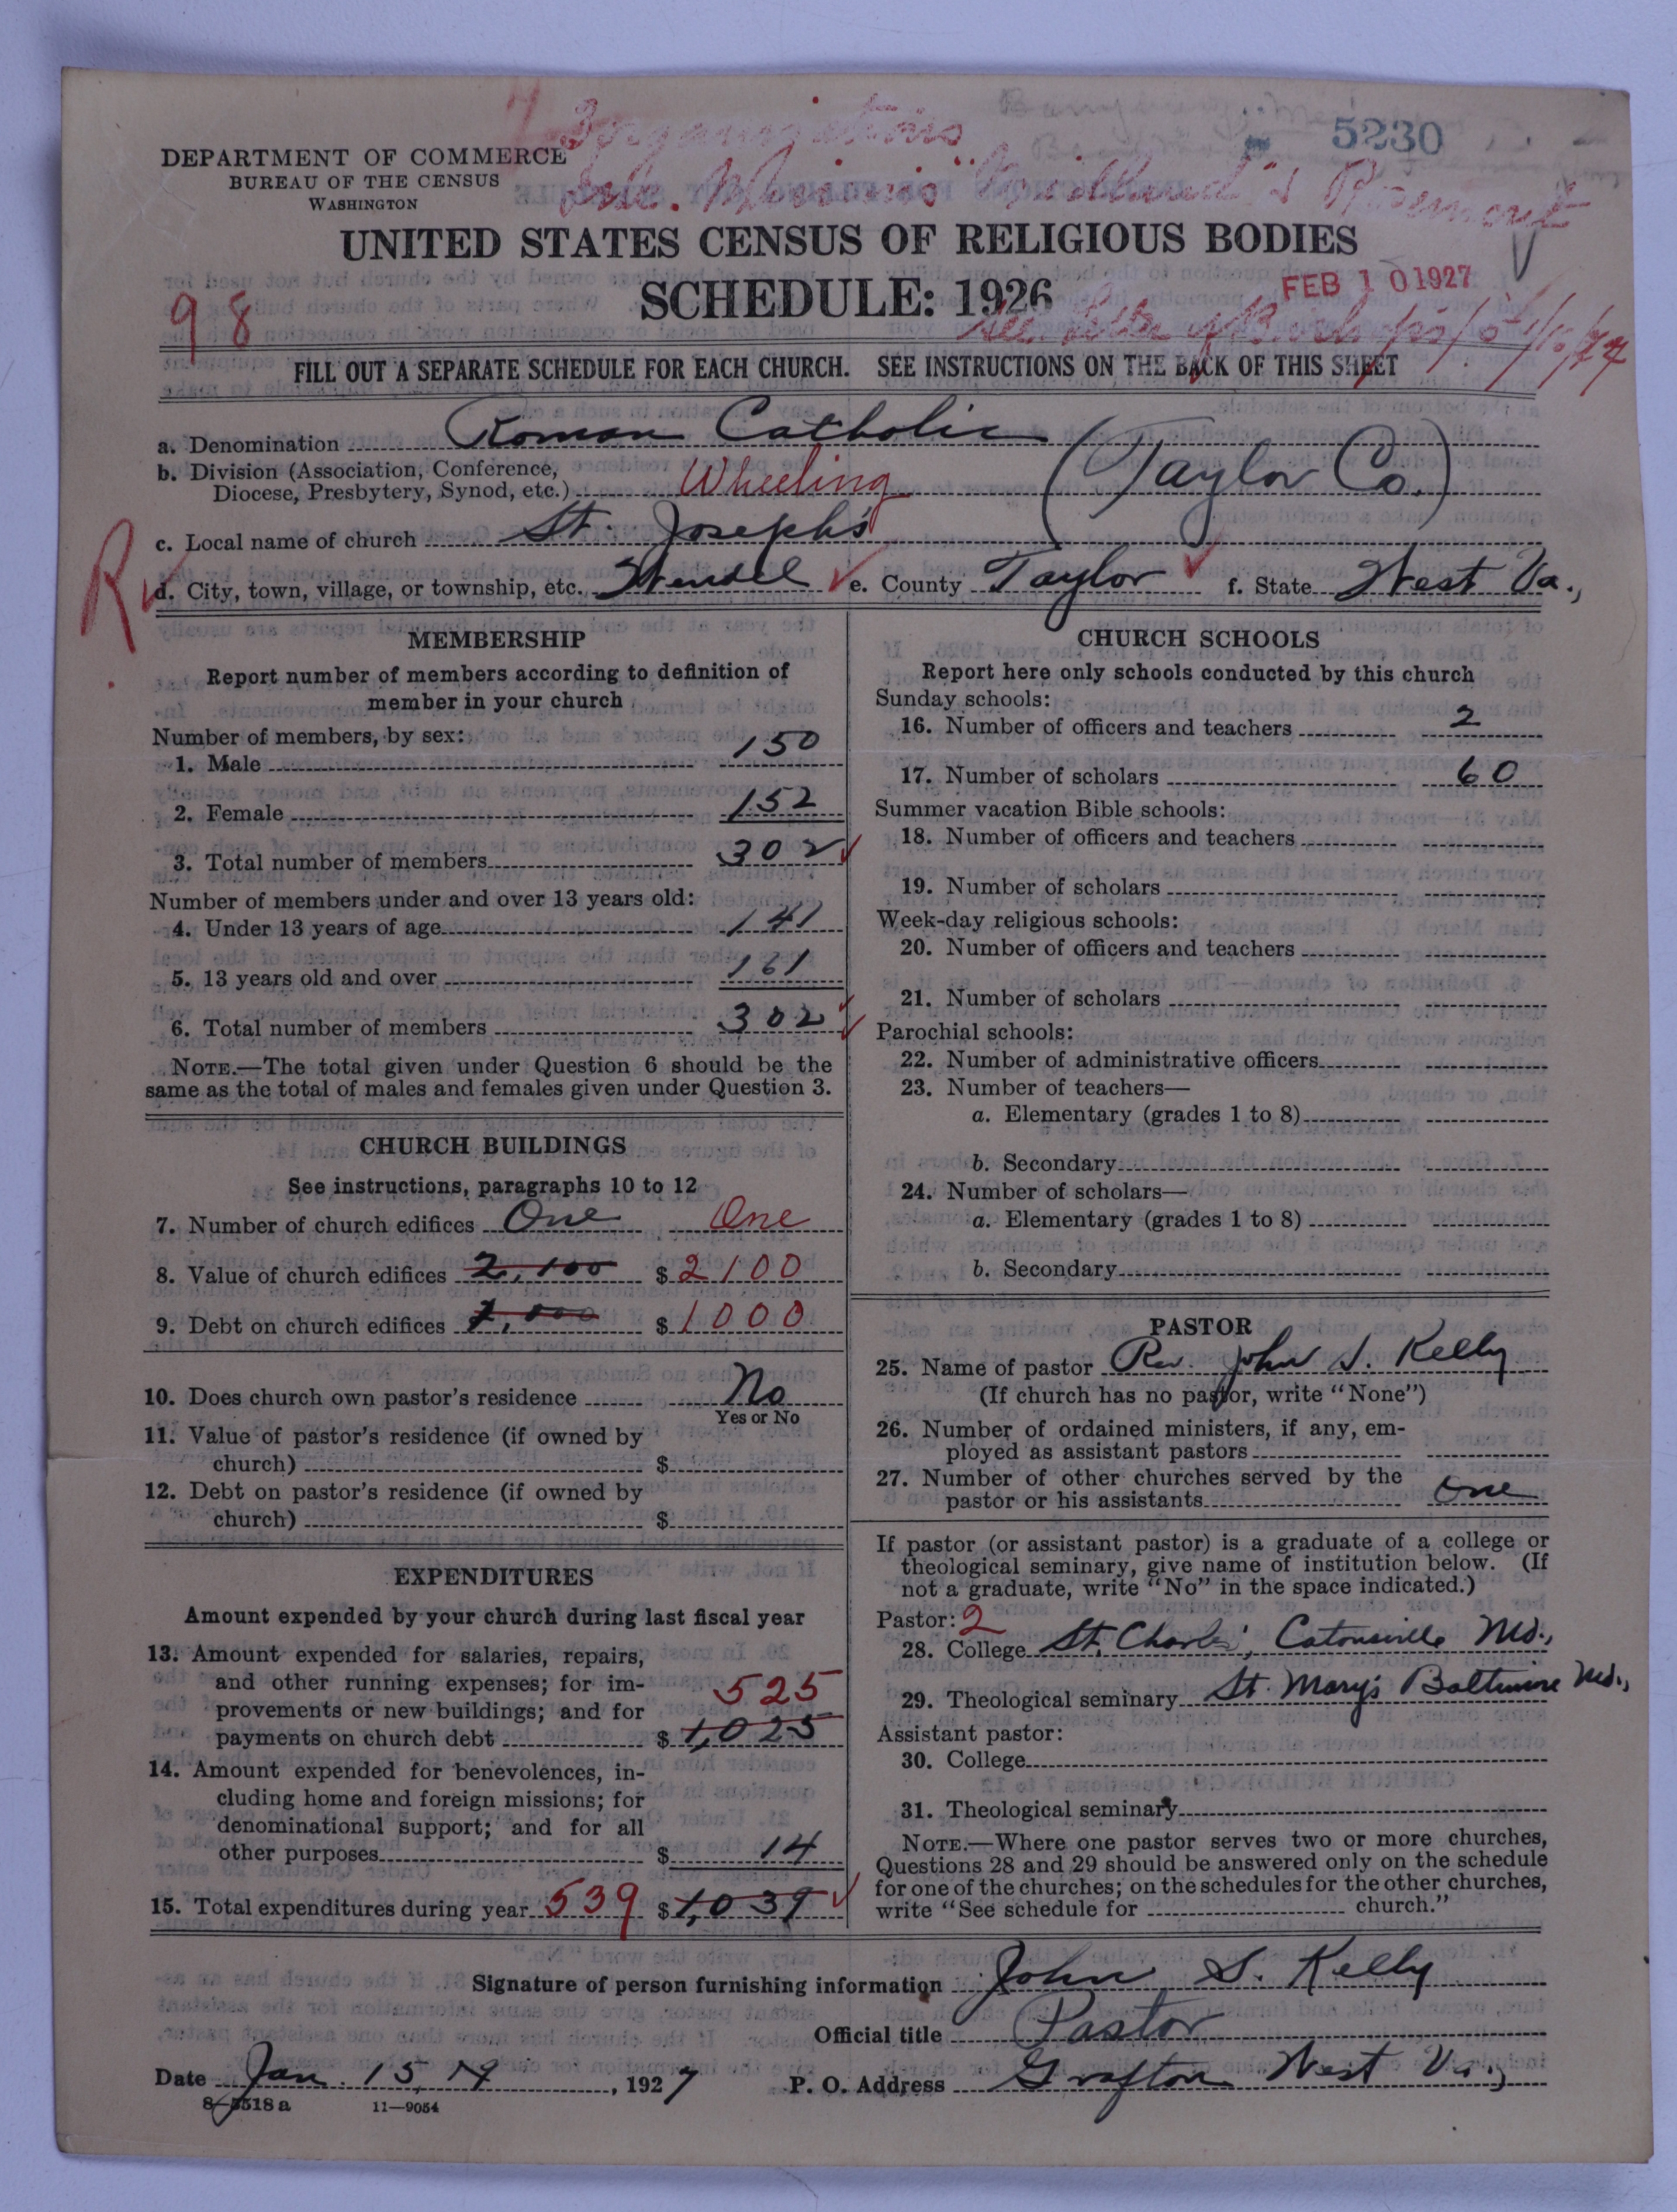 3 organizations
5230
DEPARTMENT OF COMMERCE
BUREAU OF THE CENSUS
WASHINGTON
Inc. Missions "Midland" & Rosemont
UNITED STATES CENSUS OF RELIGIOUS BODIES
SCHEDULE: 1926
FEB 10 1927
98
See letter
FILL OUT A SEPARATE SCHEDULE FOR EACH CHURCH. SEE INSTRUCTIONS ON THE BACK OF THIS SHEET
a. Denomination Roman Catholic
b. Division (Association, Conference,
Diocese, Presbytery, Synod, etc.) Wheeling (Taylor Co.)
c. Local name of church St. Joseph's
R
d. City, town, village, or township, etc. Wendel e. County Taylor f. State West Va.,
MEMBERSHIP
Report number of members according to definition of
member in your church
Number of members, by sex:
1. Male 150
2. Female 152
3. Total number of members 302
Number of members under and over 13 years old:
4. Under 13 years of age 141
5. 13 years old and over 161
6. Total number of members 302
NOTE.—The total given under Question 6 should be the
same as the total of males and females given under Question 3.
CHURCH BUILDINGS
See instructions, paragraphs 10 to 12
7. Number of church edifices One One
8. Value of church edifices 2,100 $ 2100
9. Debt on church edifices 1,000 $ 1000
10. Does church own pastor's residence No
Yes or No
11. Value of pastor's residence (if owned by
church) $
12. Debt on pastor's residence (if owned by
church) $
EXPENDITURES
Amount expended by your church during last fiscal year
13. Amount expended for salaries, repairs,
and other running expenses; for im-
provements or new buildings; and for 525
payments on church debt $ 1,025
14. Amount expended for benevolences, in-
cluding home and foreign missions; for
denominational support; and for all
other purposes $ 14
15. Total expenditures during year 539 $ 1,039
CHURCH SCHOOLS
Report here only schools conducted by this church
Sunday schools:
16. Number of officers and teachers 2
17. Number of scholars 60
Summer vacation Bible schools:
18. Number of officers and teachers
19. Number of scholars
Week-day religious schools:
20. Number of officers and teachers
21. Number of scholars
Parochial schools:
22. Number of administrative officers
23. Number of teachers—
a. Elementary (grades 1 to 8)
b. Secondary
24. Number of scholars—
a. Elementary (grades 1 to 8)
b. Secondary
PASTOR
25. Name of pastor Rev. John S. Kelly
(If church has no pastor, write "None")
26. Number of ordained ministers, if any, em-
ployed as assistant pastors
27. Number of other churches served by the
pastor or his assistants One
If pastor (or assistant pastor) is a graduate of a college or
theological seminary, give name of institution below. (If
not a graduate, write "No" in the space indicated.)
Pastor: 2
28. College St. Charles', Catonsville Md.,
29. Theological seminary St. Mary's Baltimore Md.,
Assistant pastor:
30. College
31. Theological seminary
NOTE.—Where one pastor serves two or more churches,
Questions 28 and 29 should be answered only on the schedule
for one of the churches; on the schedules for the other churches,
write "See schedule for church."
Signature of person furnishing information John S. Kelly
Official title Pastor
Date Jan. 15, 19, 1927 P. O. Address Grafton West Va.,
8-5518a 11-9054